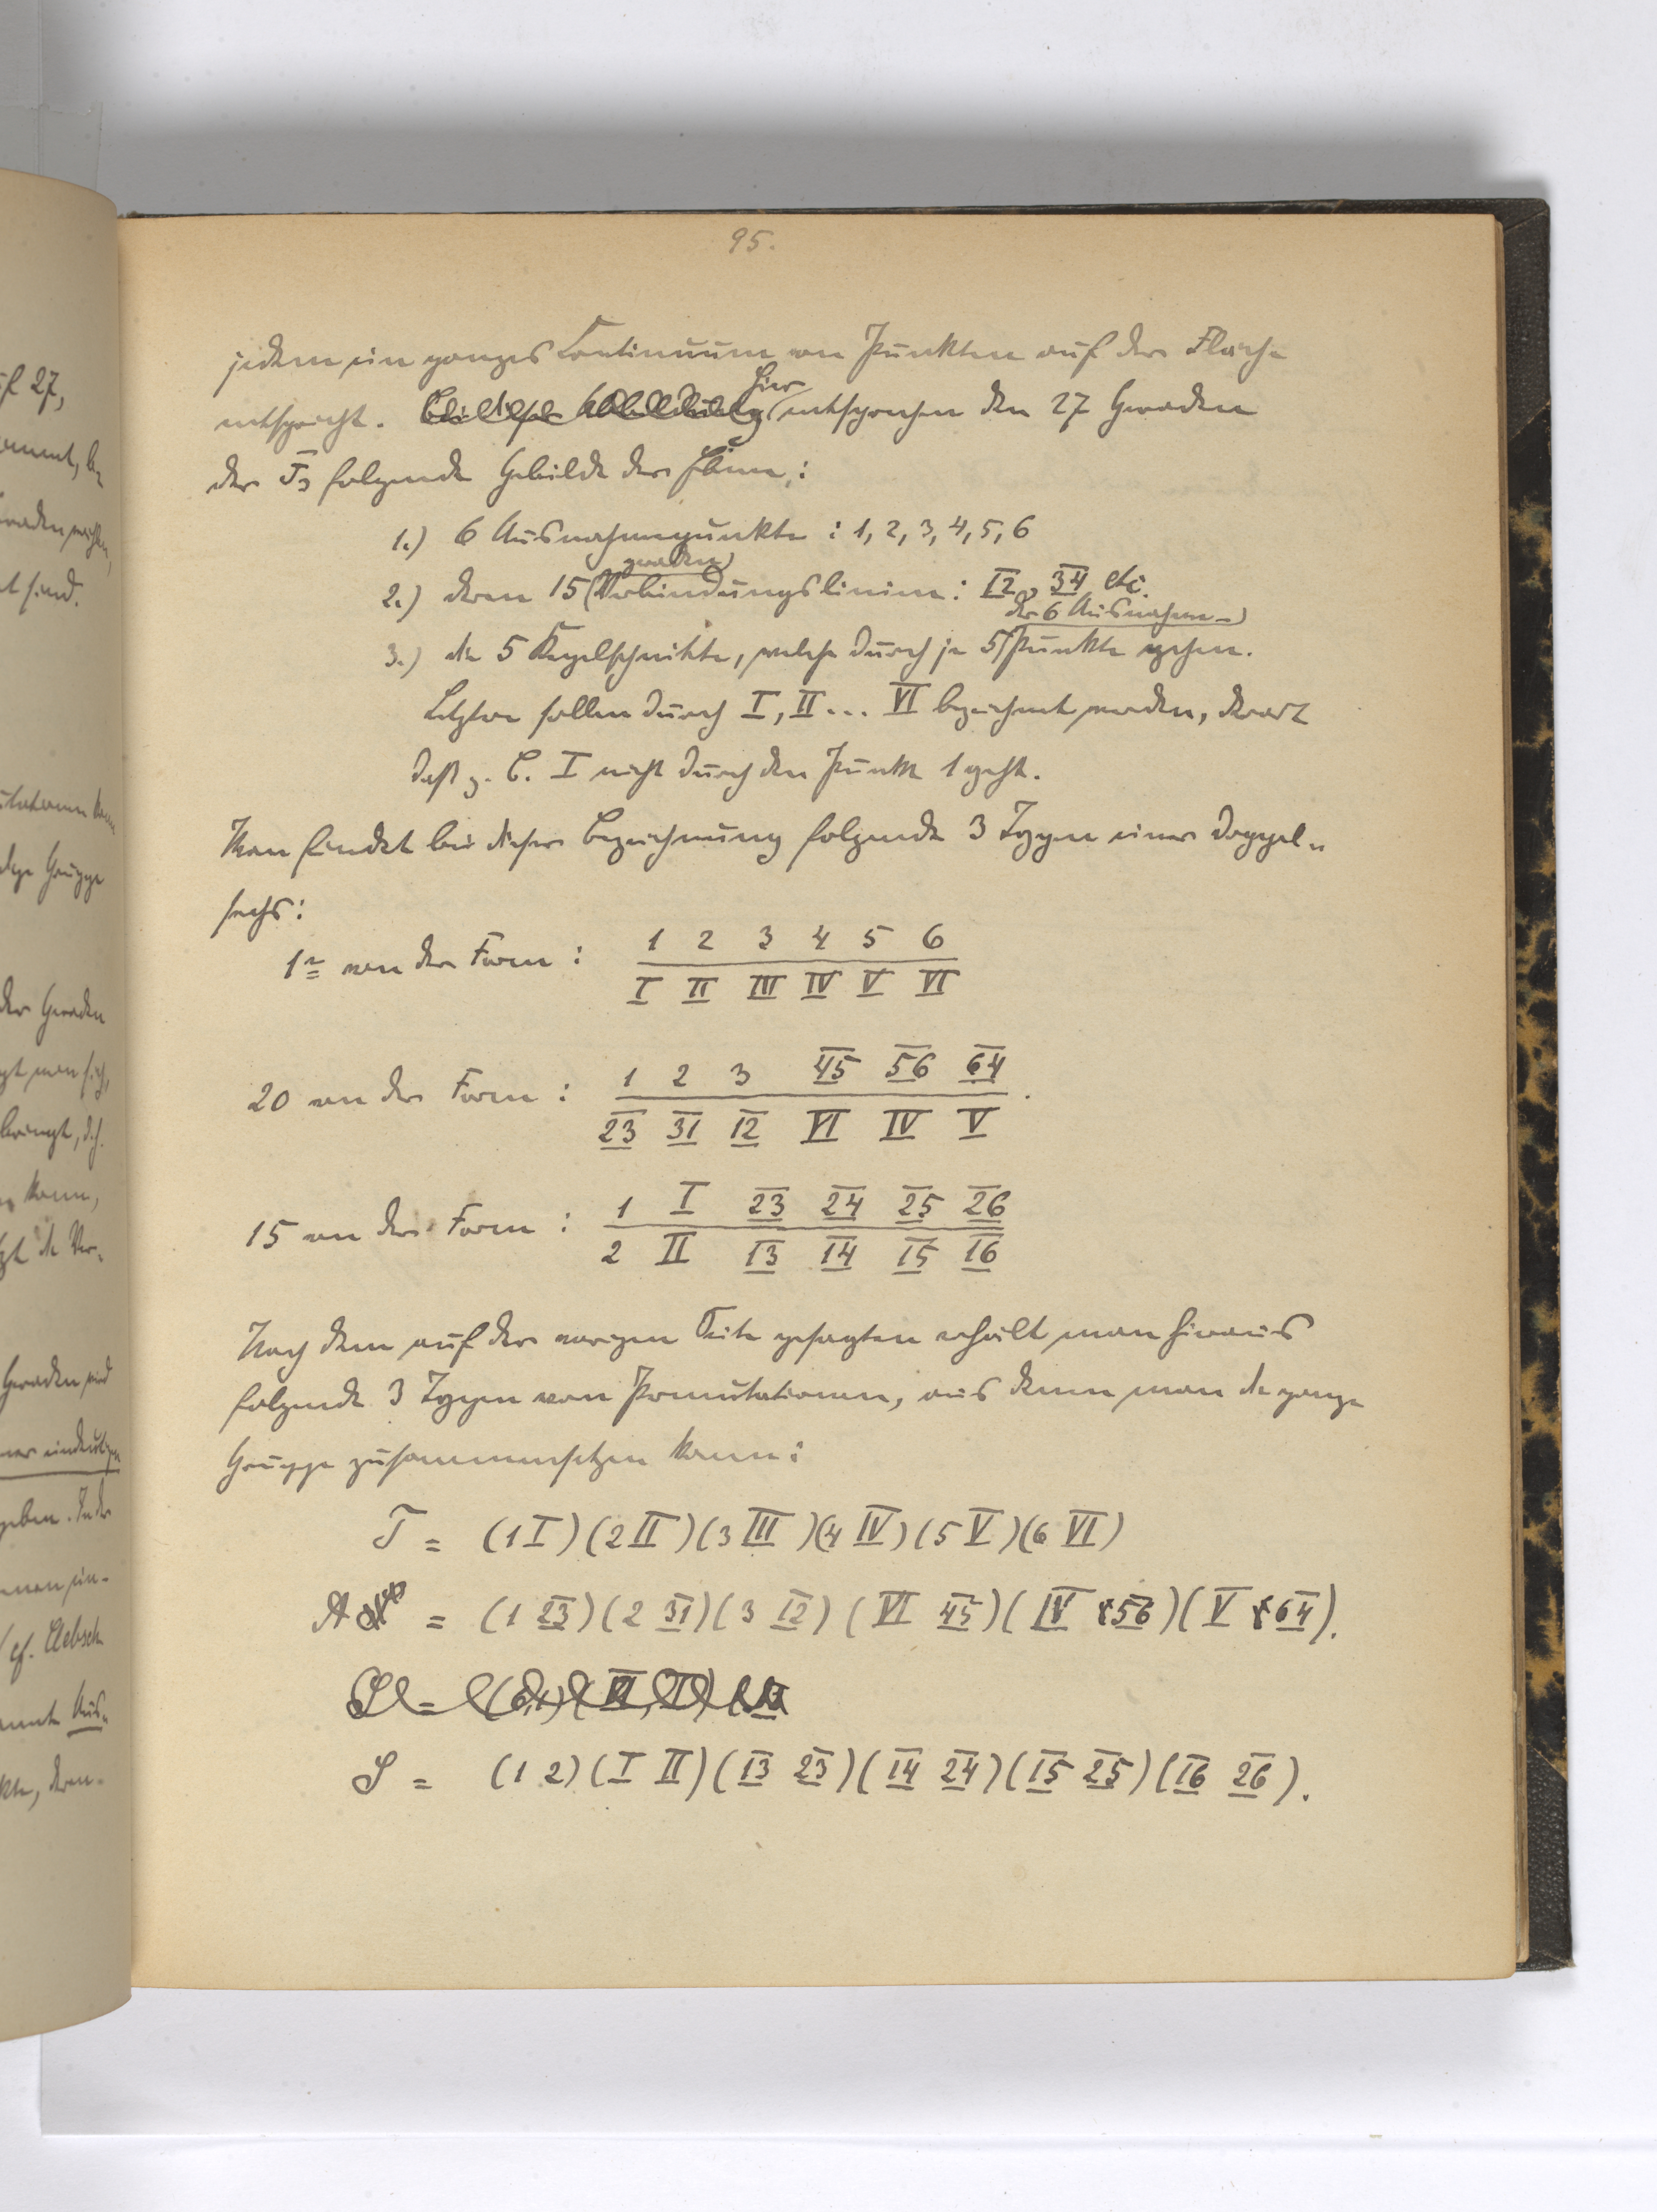 95.
jedem ein ganzes Continuum von Punkten auf der Fläche
entspricht. Bei dieser Abbildung hier entsprechen den 27 Geraden
der F3 folgende Gebilde der Ebene:
1.) 6 Ausnahmepunkte : 1, 2, 3, 4, 5, 6
2.) deren 15 geraden Verbindungslinien: 12, 34 etc.
3.) die 5 Kegelschnitte, welche durch je 5 der 6 Ausnahme- punkte gehen.
Letztere sollen durch I, II ... VI bezeichnet werden, derart
daß z. B. I nicht durch den Punkt 1 geht.
Man findet bei dieser Bezeichnung folgende 3 Typen einer Doppel-
sechs:
1 von der Form : 1 2 3 4 5 6
I II III IV V VI
20 von der Form : 1 2 3 45 56 64 .
23 31 12 VI IV V
15 von der Form : 1 I 23 24 25 26
2 II 13 14 15 16
Nach dem auf der vorigen Seite gesagten erhält man hieraus
folgende 3 Typen von Permutationen, aus denen man die ganze
Gruppe zusammensetzen kann:
T = (1 I)(2 II)(3 III)(4 IV)(5 V)(6 VI)
A = (1 23)(2 31)(3 12)(VI 45)(IV 56)(V 64).
S = (1 2)(I II)(13 23)(14 24)(15 25)(16 26).
uf 27,
Geraden
der Geraden
kann,
Geraden sind
einer eindeutigen
geben. In der
cf. Clebsch
Aus-